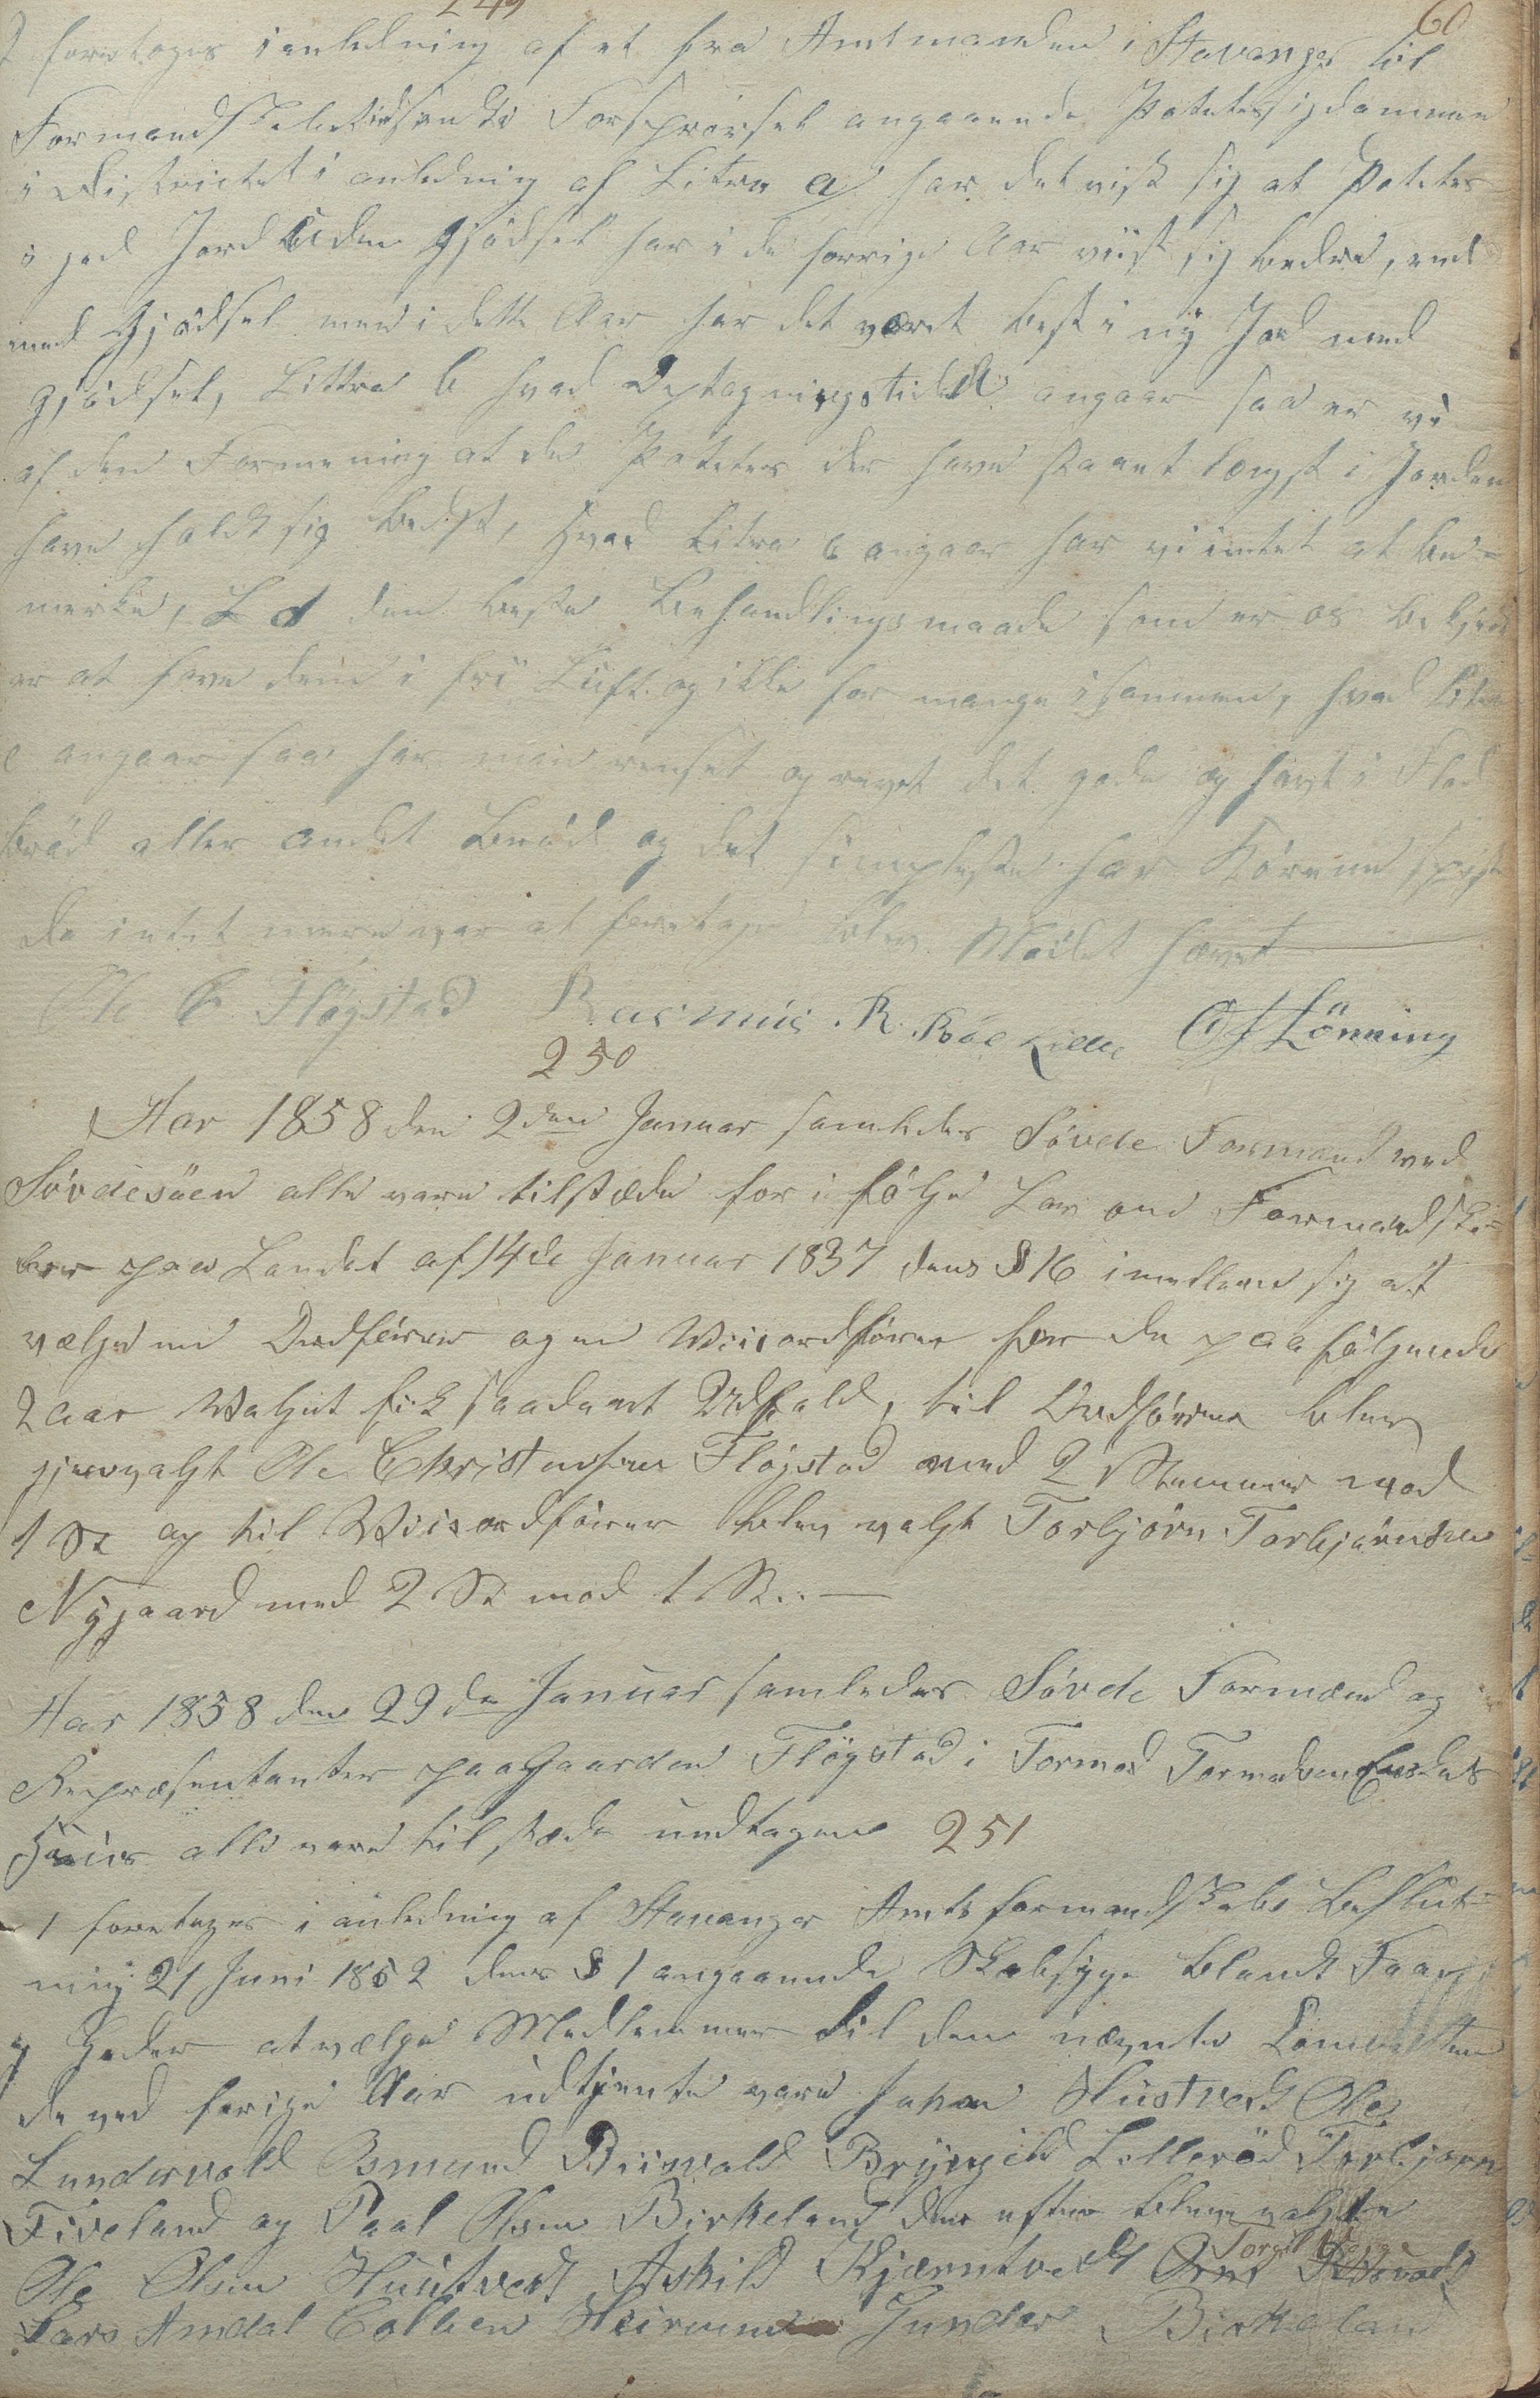 249
60
2 foretoges i anledning af et fra Amtmanden i Stavanger til
Formandskabet indsendte Forspørsel angaaende Potetessygdommen
i Districtet i anledning af Litra a har det vist sig at Potetes
i god Jord uden Gjödsel har i de forrige Aar viist sig bedre, end
med Gjödsel men i dette Aar har det været best i ny Jord med
Gjödsel, Littra b hvad Optagningstiden angaar saa er vi
af den Formening at de Potetes der have staaet længst i Jorden
have holdt sig bedst, hvad Litra c angaar har vi intet at be-
merke, L d den beste Behandlingsmaade som er os bekjendt
er at have dem i fri Luft og ikke for mange isammen, hvad Litra
e angaar saa har man renset og revet det gode og havt i Flad
bröd eller andet Bröd og det simpleste har Körene spist
da intet mere var at foretage blev Mödet hævet
Ole C Flögstad Rasmus R. Röe Lille O J Lönning
250
Aar 1858 den 2den Januar samledes Sövde Formænd ved
Sövdesöen alle vare tilstæde for i fölge Lov om Formandska-
ber paa Landet af 14de Januar 1837 dens § 16 imellem sig at
vælge en Ordförer og en Viceordförer for de paafölgende
2 aar Valget fik saadant Udfald, til Ordförer blev
gjenvalgt Ole Christensen Flögstad med 2 Stemmer mod
1 St og til Viceordförer blev valgt Torbjörn Torbjörnsen
Nygaard med 2 St mod 1 St. —
Aar 1858 den 29de Januar samledes Sövde Formænd og
Repræsentanter paa Gaarden Flögstad i Tormod Tormodsen
Huus alle vare tilstæde undtagen 251
1 foretoges i anledning af Stavanger Amtsformandskabs Beslut-
ning 21 Juni 1852 dens § 1 angaaende Skabsyge blandt Faar
og Geder at vælge Medlemmer til den nævnte
de ved forige Aar udtjente vare Johan Hustvedt Ole
Lundersvold Osmund Bryngild Lelleröd Torbjörn
Fiveland og Paal Olsen Birkeland der efter bleve valgte
Torgil
Ole Olsen Huustvedt Askild Kjærntvedt
Lars Amdal Colben Gunder Birkelan